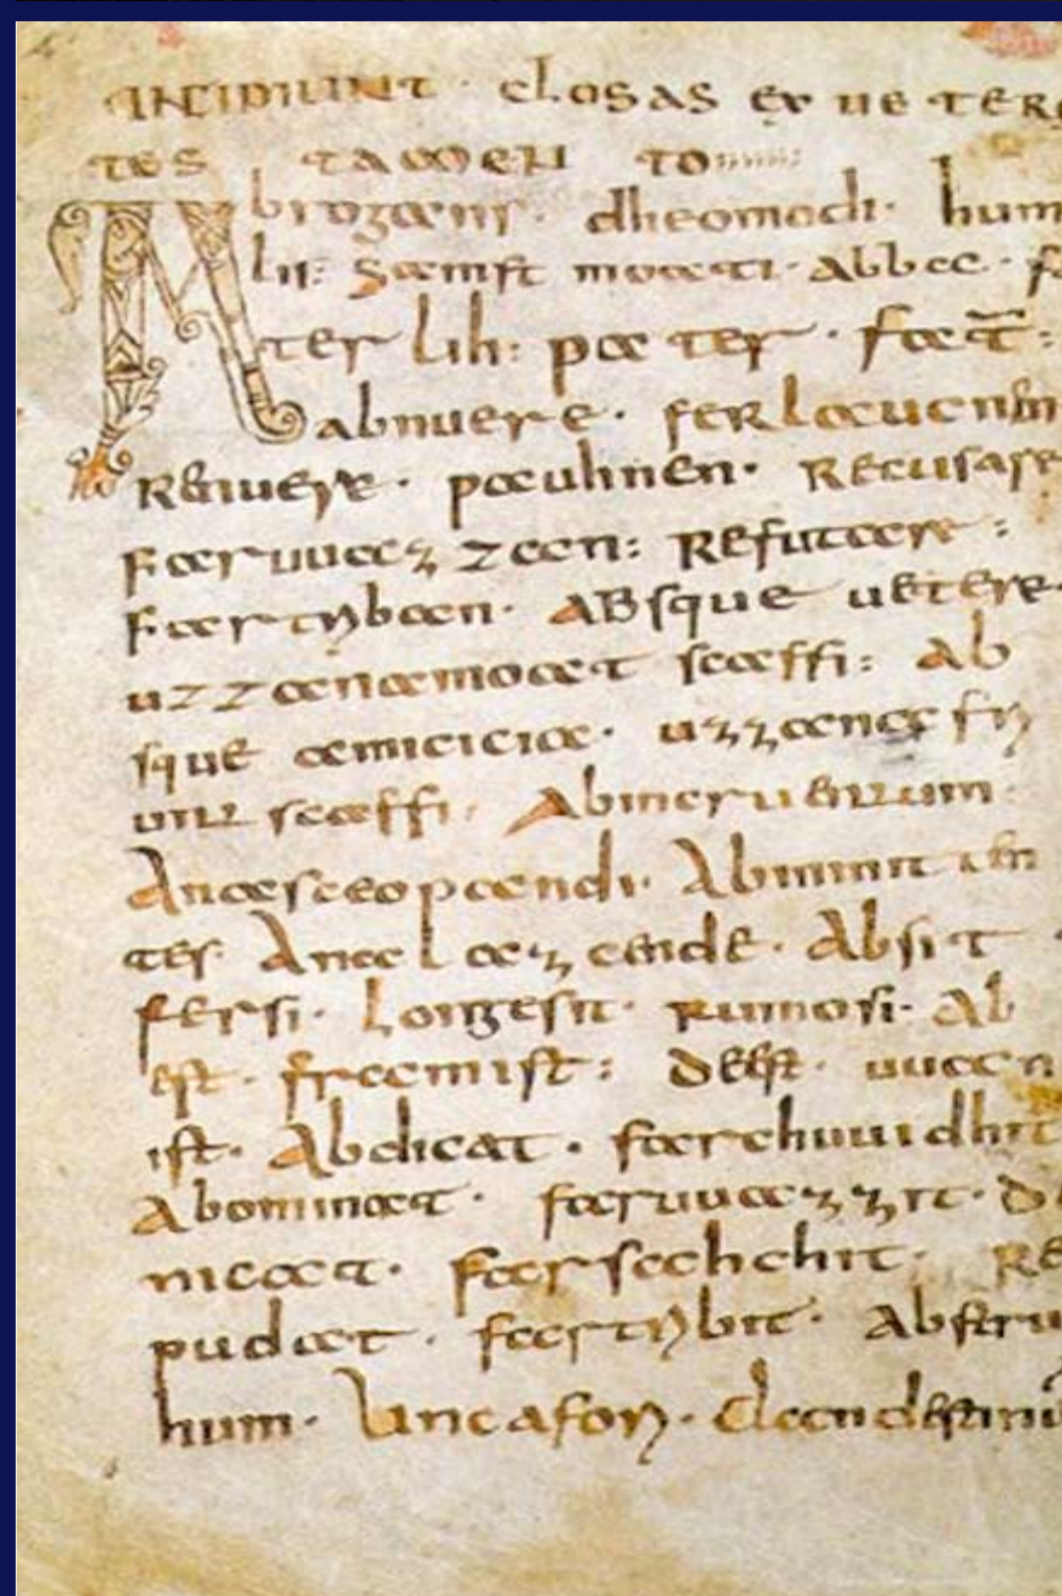 INCIPIUNT · CLOSAS EX UETERE
TES TAMEN TO
Abrogans · dheomodi · hum
lis: samft moati · abba ·
ter lih: pater · fat̄:
abnuere · ferlaucnin
Renuere · pauhnen · Recusare
faruuazzan: Refutare:
fartriban · ABsque uetere
uzzana moat scaffi: Ab
sque amicicia · uzzana fri
unt scaffi · Abincruentum
Anasceopandi · Abminit en
tes Analazcende · Absit
fersi · Longesit · rumosi · Ab
est · framist: deest · uuan
ist · Abdicat · farchuuidhit
Abominat · faruuazzit · D
nicat · farsahchit · Re
pudiat · fartribit · Abstru
hum ·